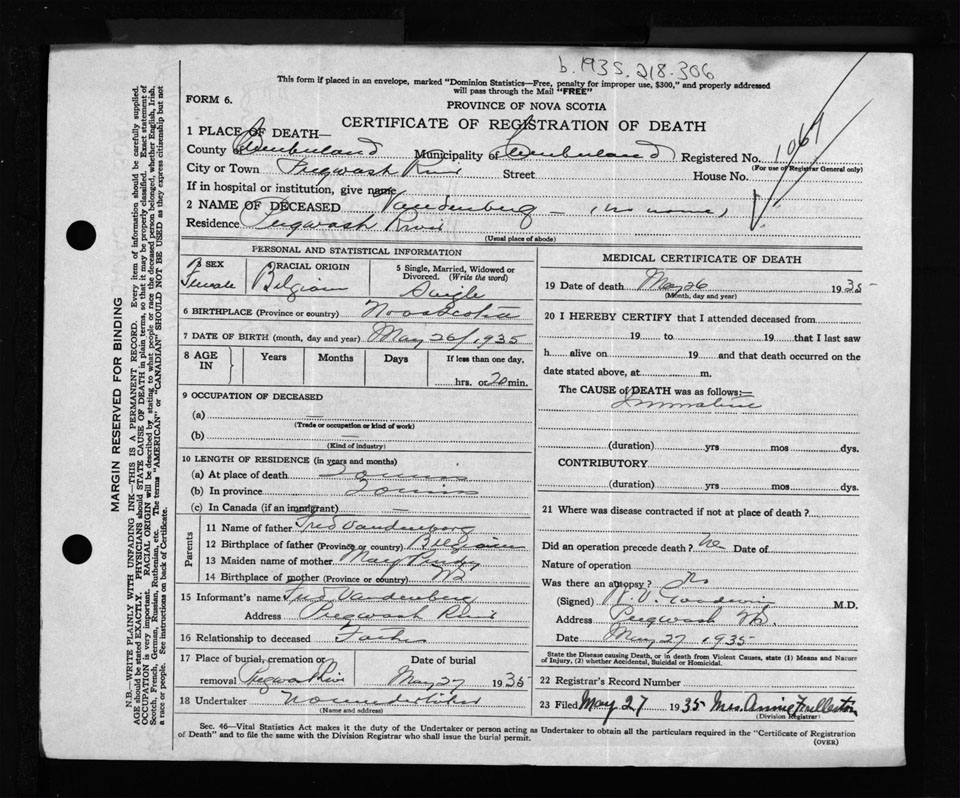 b. 1935. 218.306
This form if placed in an envelope, marked "Dominion Statistics—Free, penalty for improper use, $300," and properly addressed
will pass through the Mail "FREE"
FORM 6.
PROVINCE OF NOVA SCOTIA
CERTIFICATE OF REGISTRATION OF DEATH
1 PLACE OF DEATH—
County Cumberland Municipality of Cumberland Registered No. 1069
(For use of Registrar General only)
City or Town Pugwash River Street House No.
If in hospital or institution, give name
2 NAME OF DECEASED Vandenberg — (no name)
Residence Pugwash River
(Usual place of abode)
PERSONAL AND STATISTICAL INFORMATION
3 SEX Female
4 RACIAL ORIGIN Belgian
5 Single, Married, Widowed or Divorced. (Write the word) Single
6 BIRTHPLACE (Province or country) Nova Scotia
7 DATE OF BIRTH (month, day and year) May 26/1935
8 AGE IN Years Months Days If less than one day, hrs. or 20 min.
9 OCCUPATION OF DECEASED
(a) —
(Trade or occupation or kind of work)
(b) —
(Kind of industry)
10 LENGTH OF RESIDENCE (in years and months)
(a) At place of death
(b) In province
(c) In Canada (if an immigrant) —
Parents
11 Name of father Fred Vandenberg
12 Birthplace of father (Province or country) Belgium
13 Maiden name of mother Mary
14 Birthplace of mother (Province or country)
15 Informant's name Fred Vandenberg
Address Pugwash River
16 Relationship to deceased Father
17 Place of burial, cremation or removal Pugwash River Date of burial May 27 1935
18 Undertaker No undertaker
(Name and address)
MEDICAL CERTIFICATE OF DEATH
19 Date of death May 26 1935
(Month, day and year)
20 I HEREBY CERTIFY that I attended deceased from
19 to 19 that I last saw
h alive on 19 and that death occurred on
date stated above, at m.
The CAUSE of DEATH was as follows:—
Premature
(duration) yrs mos dys.
CONTRIBUTORY
(duration) yrs mos dys.
21 Where was disease contracted if not at place of death?
Did an operation precede death? No Date of
Nature of operation
Was there an autopsy? No
(Signed) Goodwin M.D.
Address Pugwash N.S.
Date May 27 1935
State the Disease causing Death, or in death from Violent Causes, state (1) Means and Nature
of Injury, (2) whether Accidental, Suicidal or Homicidal.
22 Registrar's Record Number
23 Filed May 27 1935 Mrs. Annie Fullerton
(Division Registrar)
Sec. 46—Vital Statistics Act makes it the duty of the Undertaker or person acting as Undertaker to obtain all the particulars required in the "Certificate of Registration
of Death" and to file the same with the Division Registrar who shall issue the burial permit.
(OVER)
MARGIN RESERVED FOR BINDING
N.B.—WRITE PLAINLY WITH UNFADING INK—THIS IS A PERMANENT RECORD. Every item of information should be carefully supplied.
AGE should be stated EXACTLY. PHYSICIANS should STATE CAUSE OF DEATH in plain terms, so that it may be properly classified. Exact statement of
OCCUPATION is very important. RACIAL ORIGIN will be described by stating to what people or race the deceased person belonged, whether English, Irish,
Scotch, French, German, Russian, Ruthenian, etc. The terms "AMERICAN" or "CANADIAN" SHOULD NOT BE USED as they express citizenship but not
a race or people. See instructions on back of Certificate.